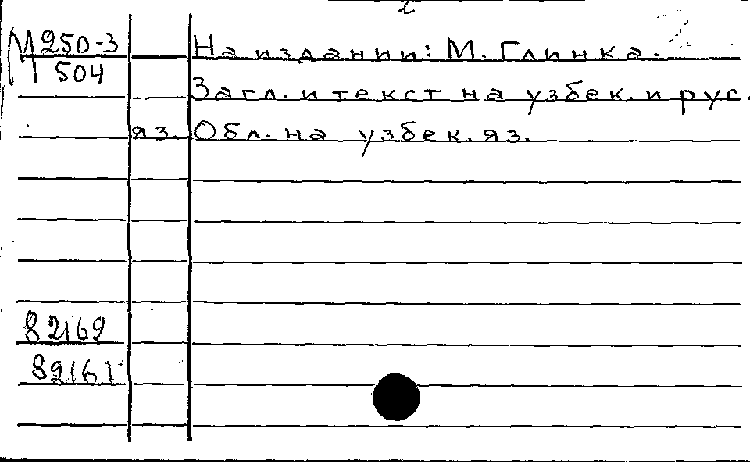 2
М 250-3 На издании: М. Глинка.
504
Загл. и текст на узбек. и рус.
яз. Обл. на узбек. яз.
82162
82161